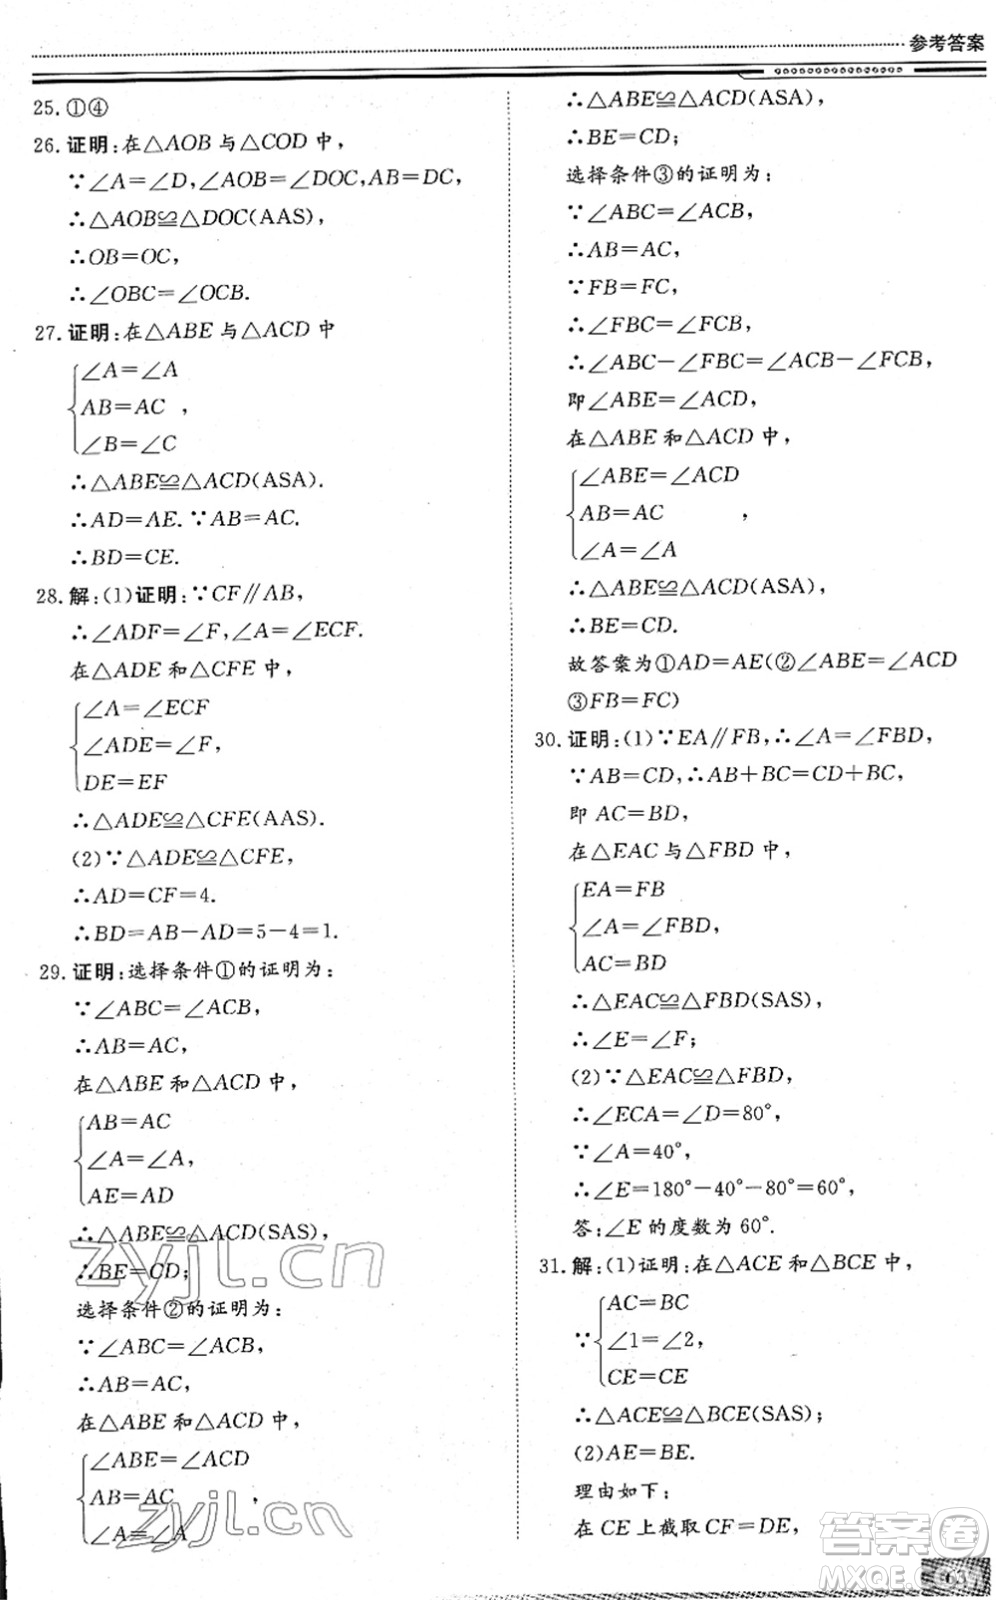 参考答案
25. ①④
26. 证明:在△AOB 与△COD 中,
∵∠A=∠D,∠AOB=∠DOC,AB=DC,
∴△AOB≌△DOC(AAS),
∴OB=OC,
∴∠OBC=∠OCB.
27. 证明:在△ABE 与△ACD 中
∠A=∠A
AB=AC ,
∠B=∠C
∴△ABE≌△ACD(ASA).
∴AD=AE. ∵AB=AC.
∴BD=CE.
28. 解:(1)证明:∵CF∥AB,
∴∠ADF=∠F,∠A=∠ECF.
在△ADE 和△CFE 中,
∠A=∠ECF
∠ADE=∠F,
DE=EF
∴△ADE≌△CFE(AAS).
(2)∵△ADE≌△CFE,
∴AD=CF=4.
∴BD=AB-AD=5-4=1.
29. 证明:选择条件①的证明为:
∵∠ABC=∠ACB,
∴AB=AC,
在△ABE 和△ACD 中,
AB=AC
∠A=∠A,
AE=AD
∴△ABE≌△ACD(SAS),
∴BE=CD;
选择条件②的证明为:
∵∠ABC=∠ACB,
∴AB=AC,
在△ABE 和△ACD 中,
∠ABE=∠ACD
AB=AC ,
∠A=∠A
∴△ABE≌△ACD(ASA),
∴BE=CD;
选择条件③的证明为:
∵∠ABC=∠ACB,
∴AB=AC,
∵FB=FC,
∴∠FBC=∠FCB,
∴∠ABC-∠FBC=∠ACB-∠FCB,
即∠ABE=∠ACD,
在△ABE 和△ACD 中,
∠ABE=∠ACD
AB=AC ,
∠A=∠A
∴△ABE≌△ACD(ASA),
∴BE=CD.
故答案为①AD=AE(②∠ABE=∠ACD
③FB=FC)
30. 证明:(1)∵EA∥FB,∴∠A=∠FBD,
∵AB=CD,∴AB+BC=CD+BC,
即 AC=BD,
在△EAC 与△FBD 中,
EA=FB
∠A=∠FBD,
AC=BD
∴△EAC≌△FBD(SAS),
∴∠E=∠F;
(2)∵△EAC≌△FBD,
∴∠ECA=∠D=80°,
∵∠A=40°,
∴∠E=180°-40°-80°=60°,
答:∠E 的度数为 60°.
31. 解:(1)证明:在△ACE 和△BCE 中,
AC=BC
∵ ∠1=∠2,
CE=CE
∴△ACE≌△BCE(SAS);
(2)AE=BE.
理由如下:
在 CE 上截取 CF=DE,
zyjl.cn
zyjl.cn
答案圈
MXQE.COM
63